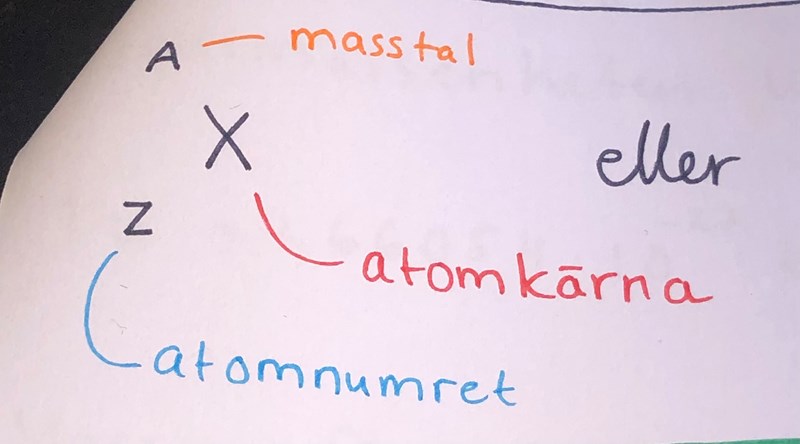 A — masstal
X
eller
Z
atomkärna
atomnumret